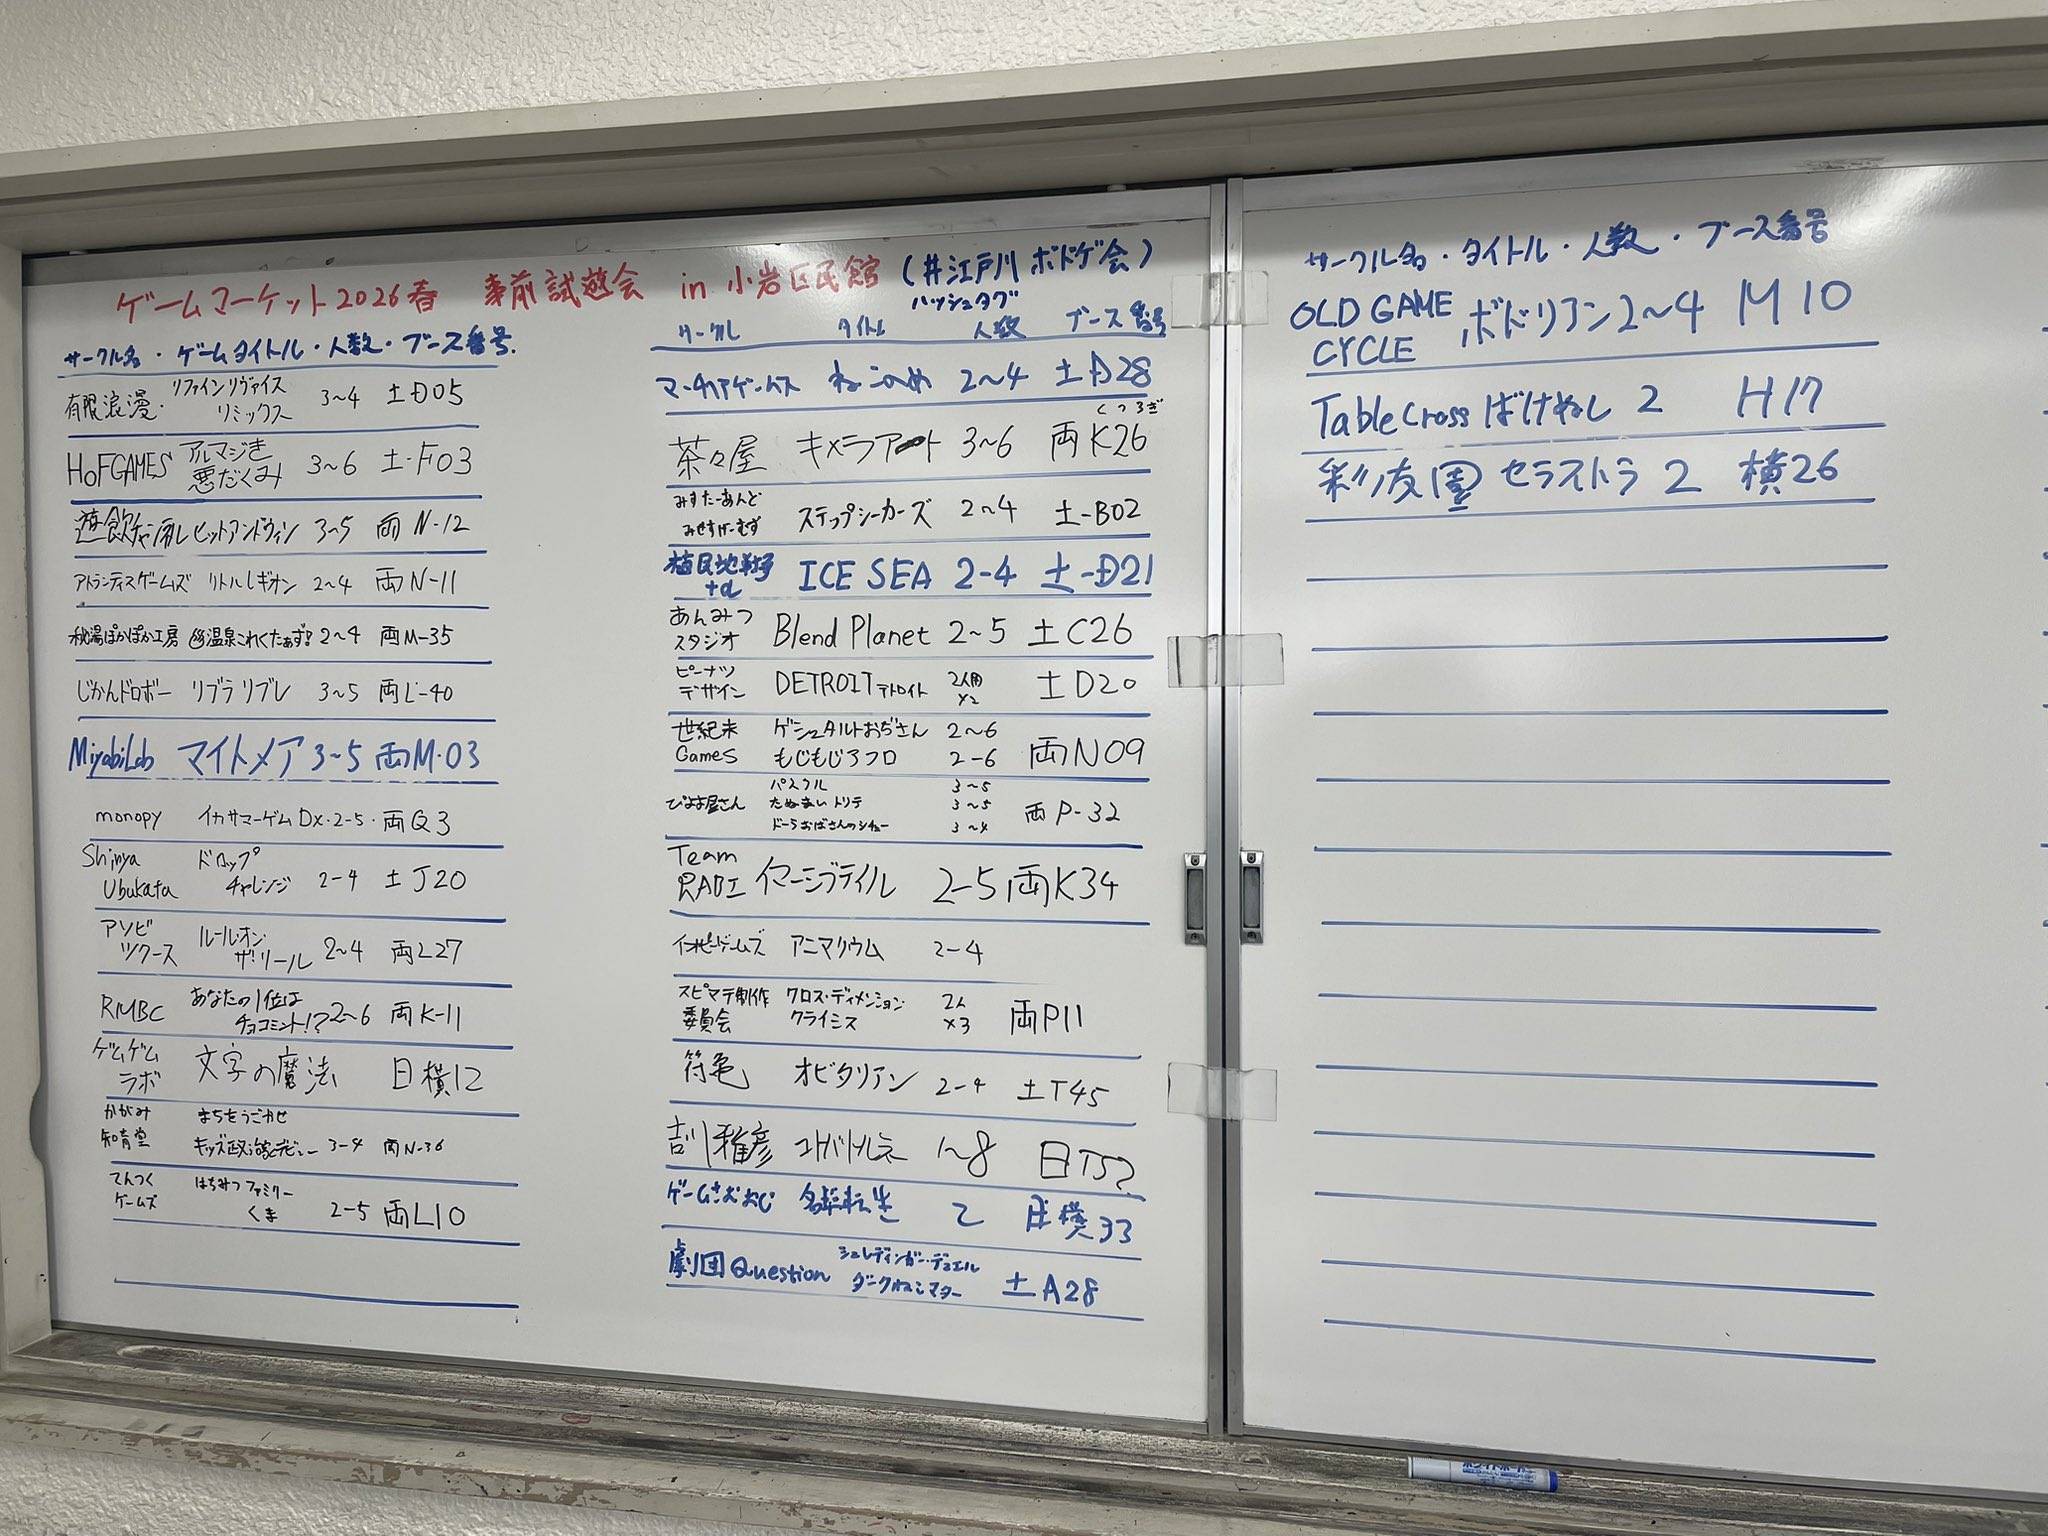 ゲームマーケット2026春 事前試遊会 in 小岩区民館 (#江戸川ボドゲ会)
ハッシュタグ
サークル名・ゲームタイトル・人数・ブース番号.
有限浪漫. リファインリヴァイスリミックス 3〜4 土D05
HOFGAMES アルマジき悪だくみ 3〜6 土-F03
遊飲チャンネル ヒットアンドウィン 3〜5 両N-12
アトランティスゲームズ リトルレギオン 2〜4 両N-11
秘湯ぽかぽか工房 温泉これくたぁず! 2〜4 両M-35
じかんドロボー リブラリブレ 3〜5 両L-40
MiyabiLab マイトメア 3〜5 両M-03
monopy イカサマーゲムDX・2-5・両Q3
Shinya Ubukata ドロップチャレンジ 2-4 土J20
アソビツクース ルール・オン・ザ・リール 2〜4 両L27
RMBC あなたの1位はチョコミント!? 2〜6 両K-11
ゲムゲムラボ 文字の魔法 日横12
かがみ知育堂 まちをうごかせ キッズ政治家デビュー 3-4 両N-36
てんつくゲームズ はちみつファミリーくま 2-5 両L10
サークル タイトル 人数 ブース番号
マーチアゲームス ねこのめ 2〜4 土D28
茶々屋 キメラアート 3〜6 両K26
くつろぎ
みすたーあんどみせすげーむず ステップシーカーズ 2〜4 土-B02
植民地戦争+α ICE SEA 2-4 土-D21
あんみつスタジオ Blend Planet 2〜5 土C26
ピーナツデザイン DETROIT デトロイト 2人用×2 土D20
世紀末Games ゲシュタルトおぢさん 2〜6
もじもじフロ 2-6 両N09
ぴよま屋さん パズクル 3〜5
たぬまいトリテ 3〜5 両P-32
ドーラおばさんのシチュー 3〜4
Team RABI イマージブテイル 2-5 両K34
ゲームズ アニマリウム 2-4
スピマテ制作委員会 クロス・ディメンション・クライシス 2人×3 両P11
符亀 オビタリアン 2-4 土T45
吉川雅彦 コトバトルネ 1〜8 日T52
ゲームさむおじ 名探転生 2 日横33
劇団Question シュレディンガー・デュエル ダークねこマター 土A28
サークル名・タイトル・人数・ブース番号
OLD GAME CYCLE ボドリアン 2〜4 M10
TableCross ばけねし 2 H17
彩友園 セラストラ 2 横26